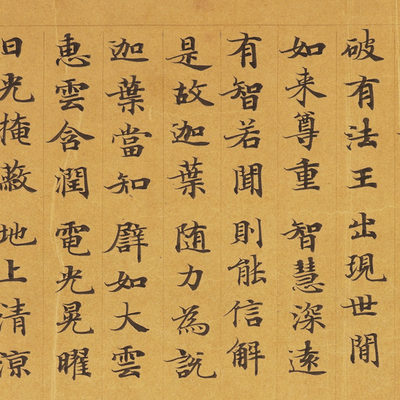 破有法王 出現世間
如来尊重 智慧深遠
有智若聞 則能信解
是故迦葉 随力為説
迦葉當知 譬如大雲
惠雲含潤 電光晃曜
日光掩蔽 地上清涼